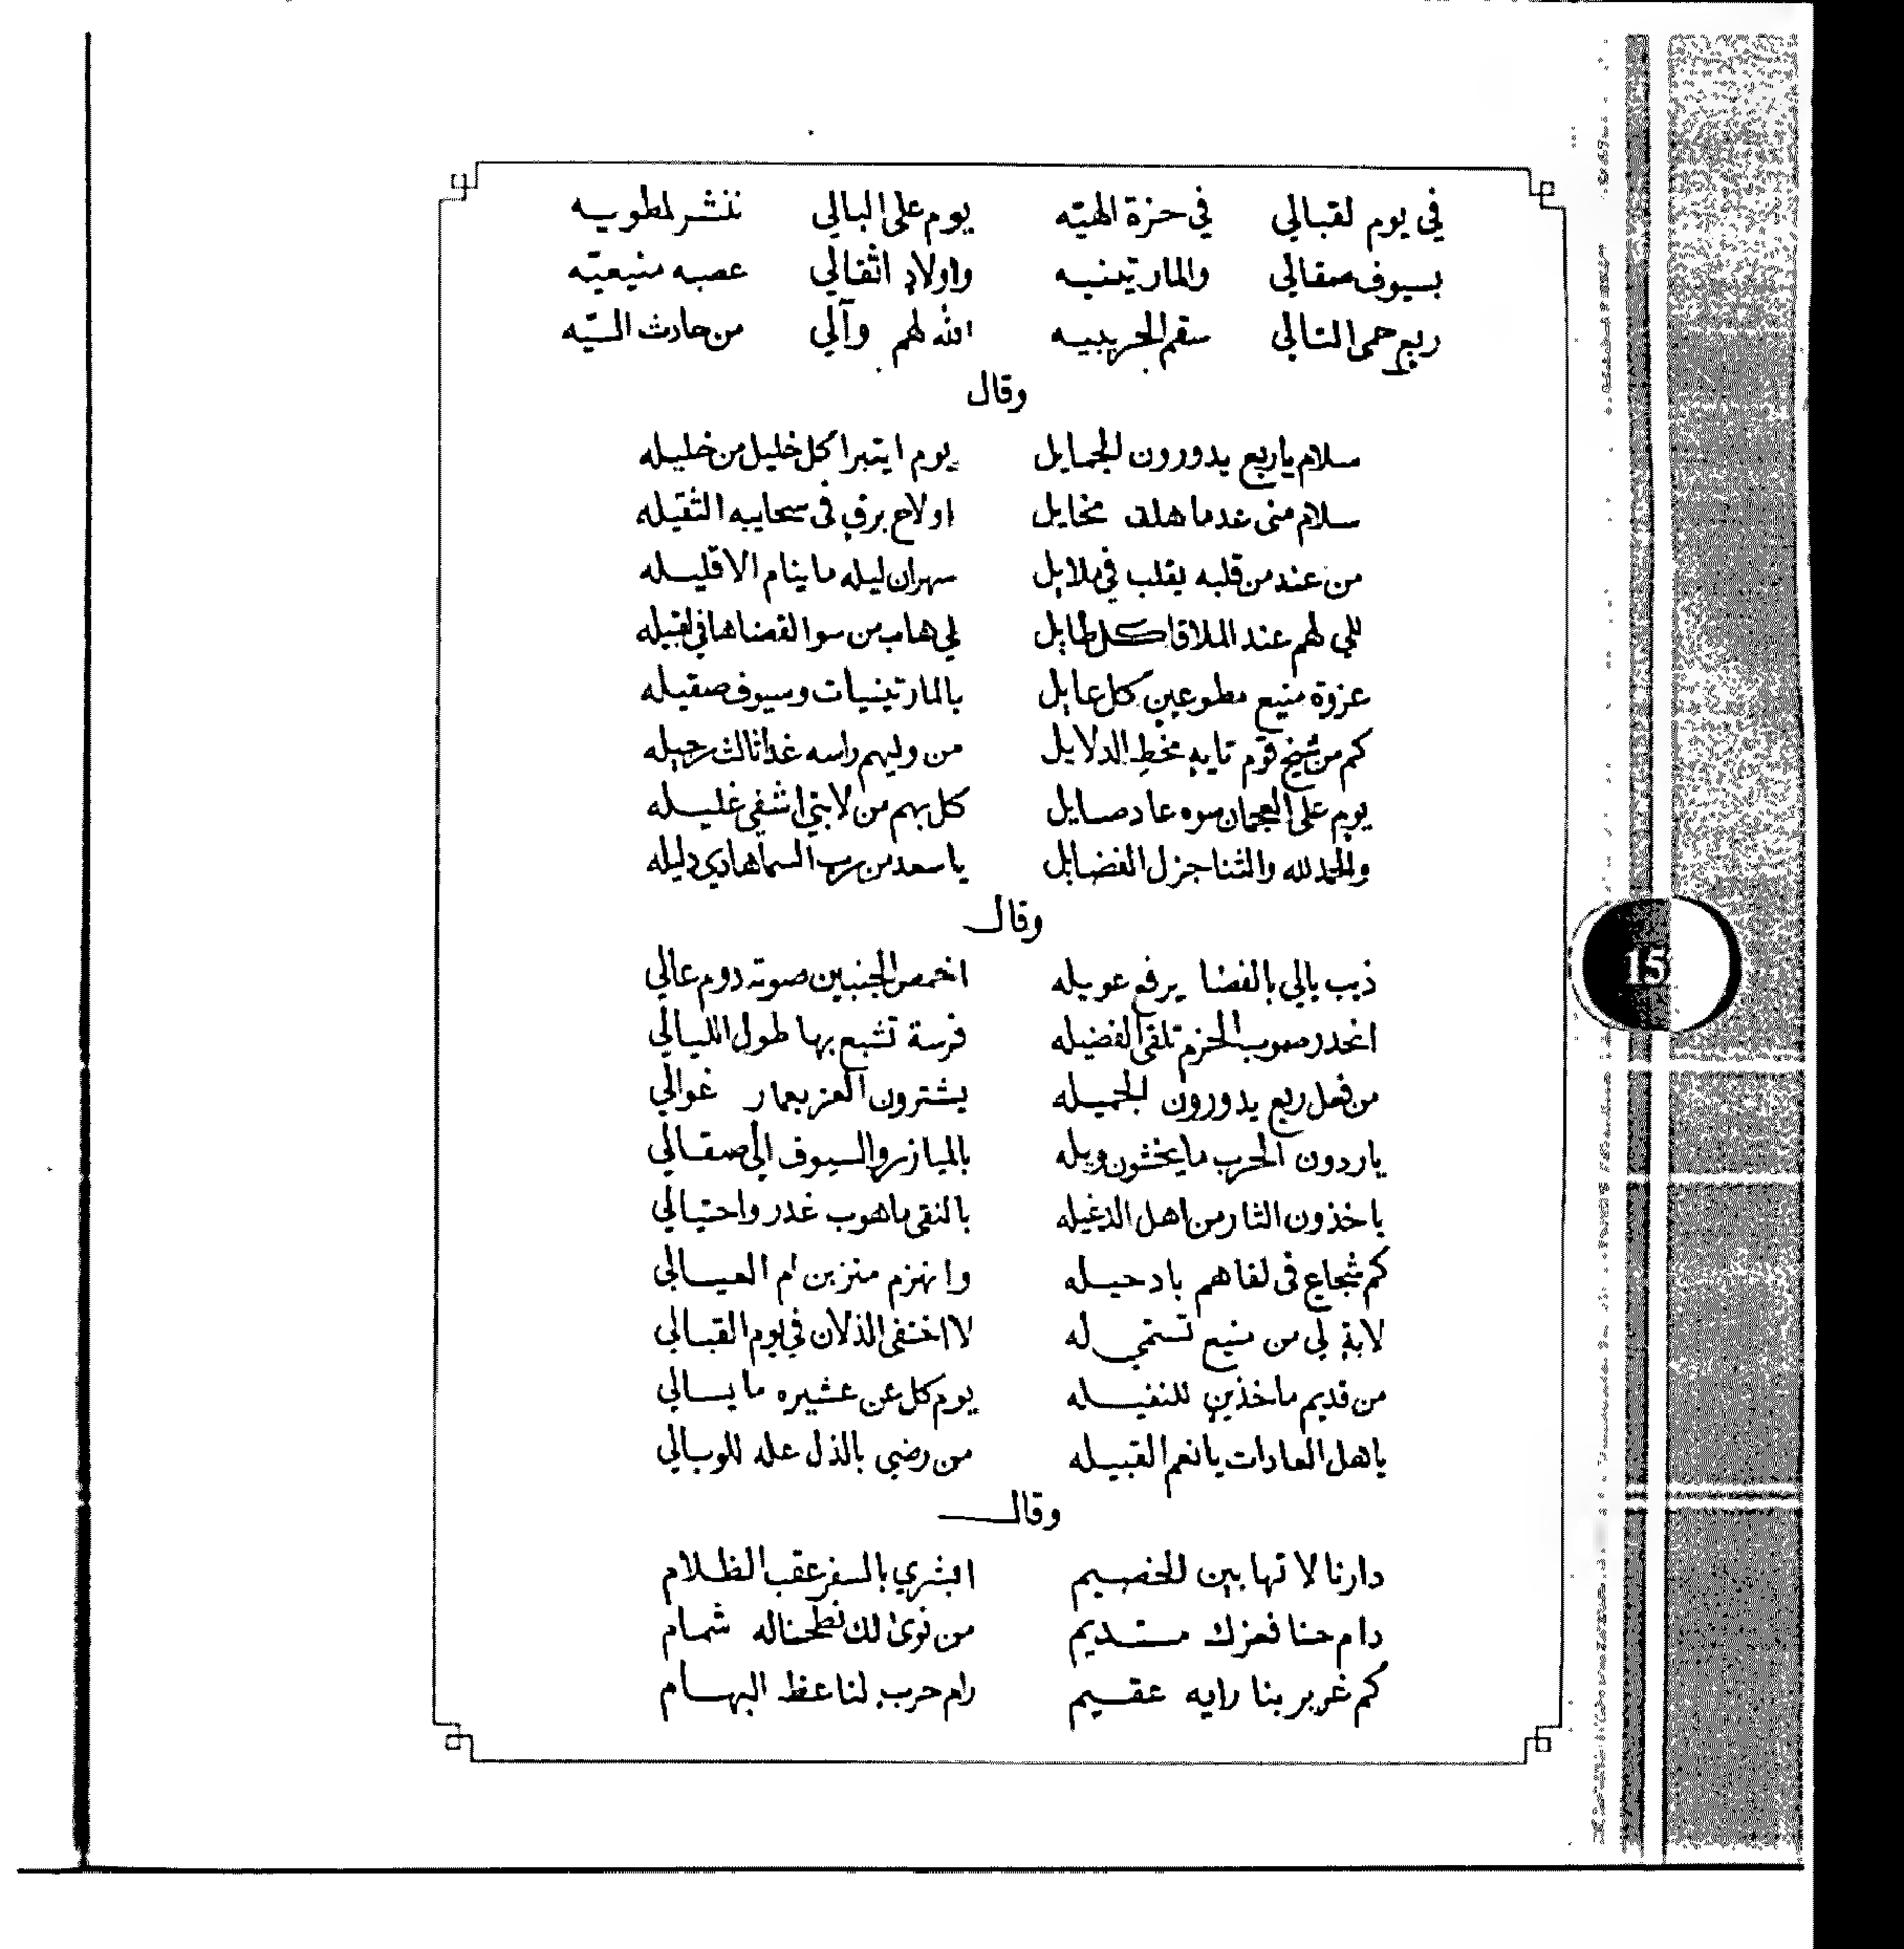 في يوم لقبالي في حزة الهيّه يوم على البالي ننشر لمطويه
بسيوف صقالي والمارتينيه واولاد اثقالي عصبه منيعيّه
ربع حمى التالي سقم الحريبيه الله لهم وآلي من حادث السيّه
وقال
سلام ياربع يدورون الجمايل يوم ايتبرا كل خليل من خليله
سلام مني عد ما هلت مخايل اولاح برق في سحايبه الثقيله
من عند من قلبه يقلب في ملايل سهران ليله ما ينام الا قليله
للي لهم عند الملاقا كل طايل لي هاب من سوا القضا هافي لقبيله
عزوة منيع مطوعين كل عايل بالمارتينيات وسيوف صقيله
كم من شيخ قوم تايه مخط الدلايل من وليهم راسه غدا ثالث رحيله
يوم على العجمان سوه عاد صايل كل بهم من لابتي اشفى غليله
والحمد لله والثنا جزل الفضايل يا سعد من رب السما هادي دليله
وقال
ذيب يالي بالفضا يرفع عويله اخمص الجنبين صوته دوم عالي
انحدر صوب الحزم تلقى الفضيله فرسة تشبع بها طول الليالي
من فعل ربع يدورون الجميله يشترون العز بعمار غوالي
ياردون الحرب ما يخشون ويله بالميازر والسيوف الى صقالي
ياخذون الثار من اهل الدغيله بالنقى ماهوب غدر واحتيالي
كم شجاع في لقاهم باد حيله وانهزم منزبن ام العيالي
لابة لي من منيع تستمي له لا اختفى الذلان في يوم القبالي
من قديم ماخذين للنفيله يوم كل عن عشيره ما يسالي
ياهل العادات يا نعم القبيله من رضي بالذل عله للوبالي
وقال
دارنا لا تهابين للخصيم ابشري بالسفر عقب الظلام
دام حنا فعزك مستديم من نوى لك نطحناله شمام
كم غرير بنا رايه عقيم رام حرب لنا عظ البهام
15